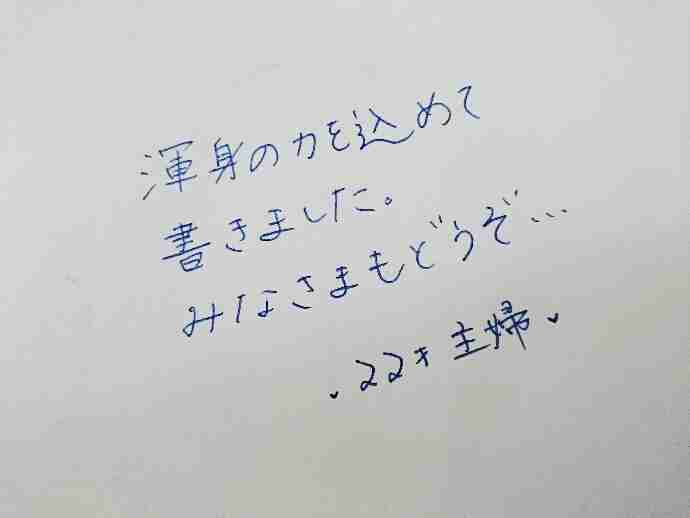 渾身の力を込めて
書きました。
みなさまもどうぞ…
、22才主婦、